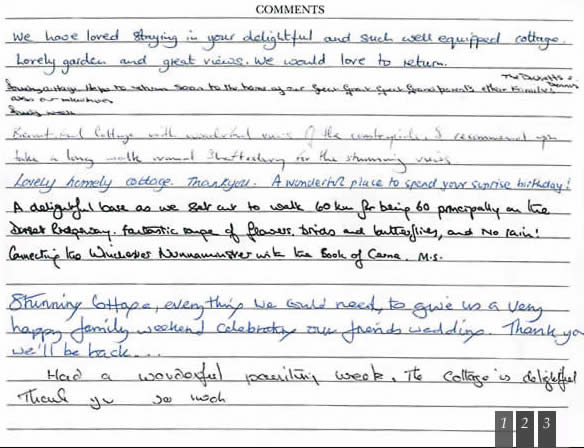 COMMENTS
We have loved staying in your delightful and such well equipped cottage.
Lovely garden and great views. We would love to return.
The
to return soon to the home of our Great Great Great Grandparents other Families

Beautiful Cottage with wonderful views of the countryside, I recommend you
take a long walk around Shaftesbury for the stunning views
Lovely homely cottage. Thankyou. A wonderful place to spend your suprise birthday!
A delightful base as we set out to walk 60 km for being 60 principally on the
Dorset Ridgeway. Fantastic range of flowers, birds and butterflies, and No rain!
Connecting the Winchester Nunnaminster with the Book of Cerne. M.S.
Stunning Cottage, everything we could need, to give us a very
happy family weekend celebrating our friends wedding. Thank you
we'll be back...
Had a wonderful painting week. The Cottage is delightful
Thank you so much
1 2 3